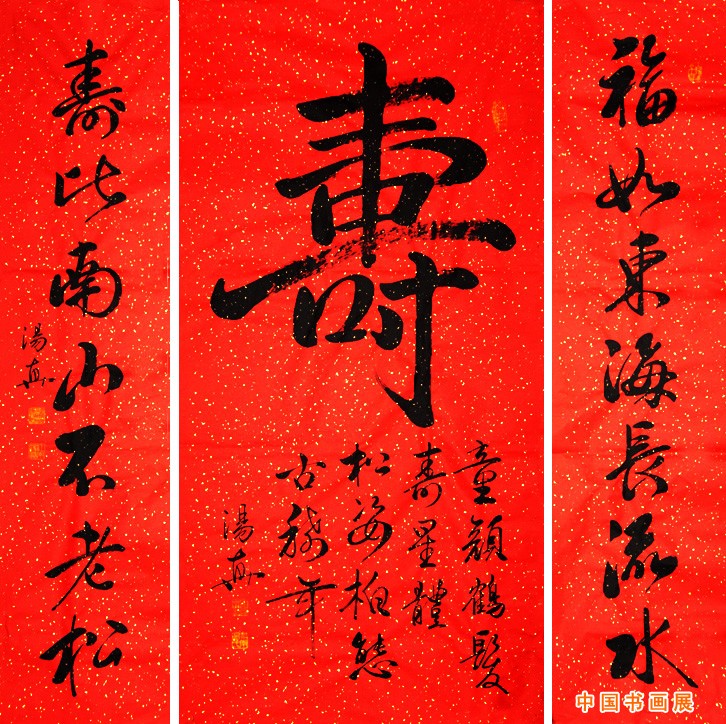 福如東海長流水
壽
童顏鶴髮
壽星體
松姿柏態
古稀年
湯真
壽比南山不老松
湯真
中国书画展